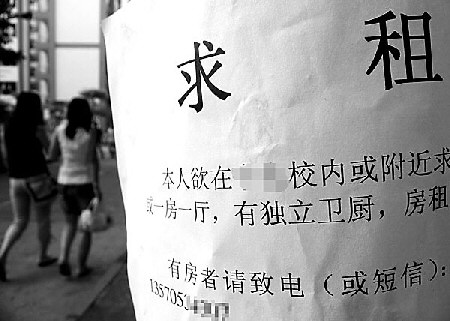 求 租
本人欲在 校内或附近求
或一房一厅，有独立卫厨，房租
有房者请致电（或短信）：
1357053